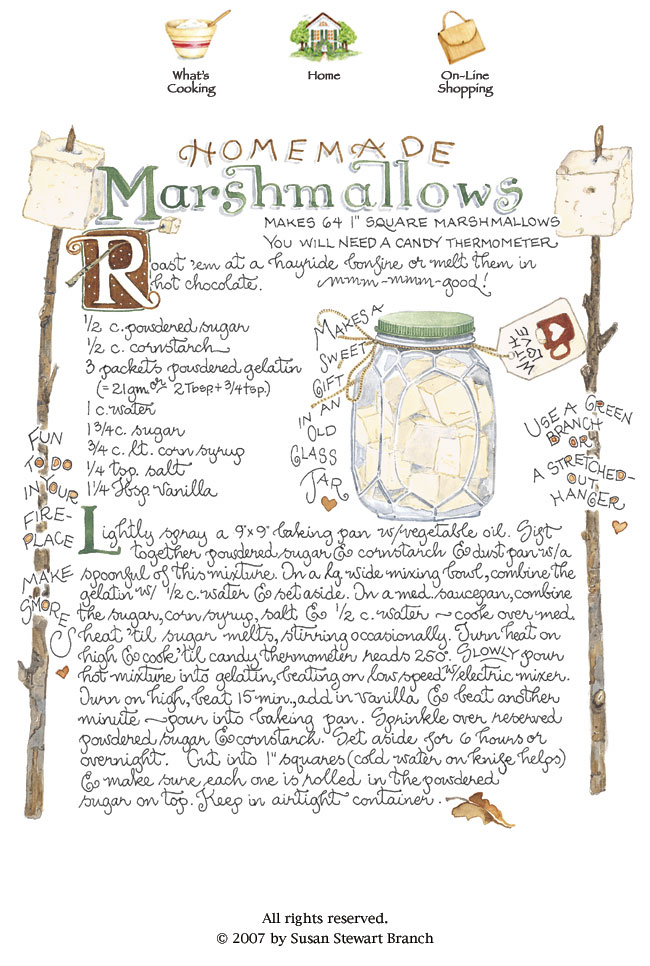 What's
Cooking
Home
On-Line
Shopping
HOMEMADE
Marshmallows
MAKES 64 1" SQUARE MARSHMALLOWS
YOU WILL NEED A CANDY THERMOMETER
Roast 'em at a hayride bonfire or melt them in
hot chocolate. mmm-mmm-good!
1/2 c. powdered sugar
1/2 c. cornstarch
3 packets powdered gelatin
(=21gm. or 2 Tbsp + 3/4 tsp.)
1 c. water
1 3/4 c. sugar
3/4 c. lt. corn syrup
1/4 tsp. salt
1 1/4 tbsp vanilla
MAKES A
SWEET
GIFT
IN AN
OLD
GLASS
JAR
WITH
LOVE
USE A GREEN
BRANCH
OR
A STRETCHED-
OUT
HANGER
FUN
TO DO
IN YOUR
FIRE-
PLACE
MAKE
SMORE
S
Lightly spray a 9"x9" baking pan w/vegetable oil. Sift
together powdered sugar & cornstarch & dust pan w/a
spoonful of this mixture. In a lg. wide mixing bowl, combine the
gelatin w/ 1/2 c. water & set aside. In a med. saucepan, combine
the sugar, corn syrup, salt & 1/2 c. water ~ cook over med.
heat 'til sugar melts, stirring occasionally. Turn heat on
high & cook 'til candy thermometer reads 250°. SLOWLY pour
hot mixture into gelatin, beating on low speed w/electric mixer.
Turn on high, beat 15 min., add in vanilla & beat another
minute ~ pour into baking pan. Sprinkle over reserved
powdered sugar & cornstarch. Set aside for 6 hours or
overnight. Cut into 1" squares (cold water on knife helps)
& make sure each one is rolled in the powdered
sugar on top. Keep in airtight container.
All rights reserved.
© 2007 by Susan Stewart Branch